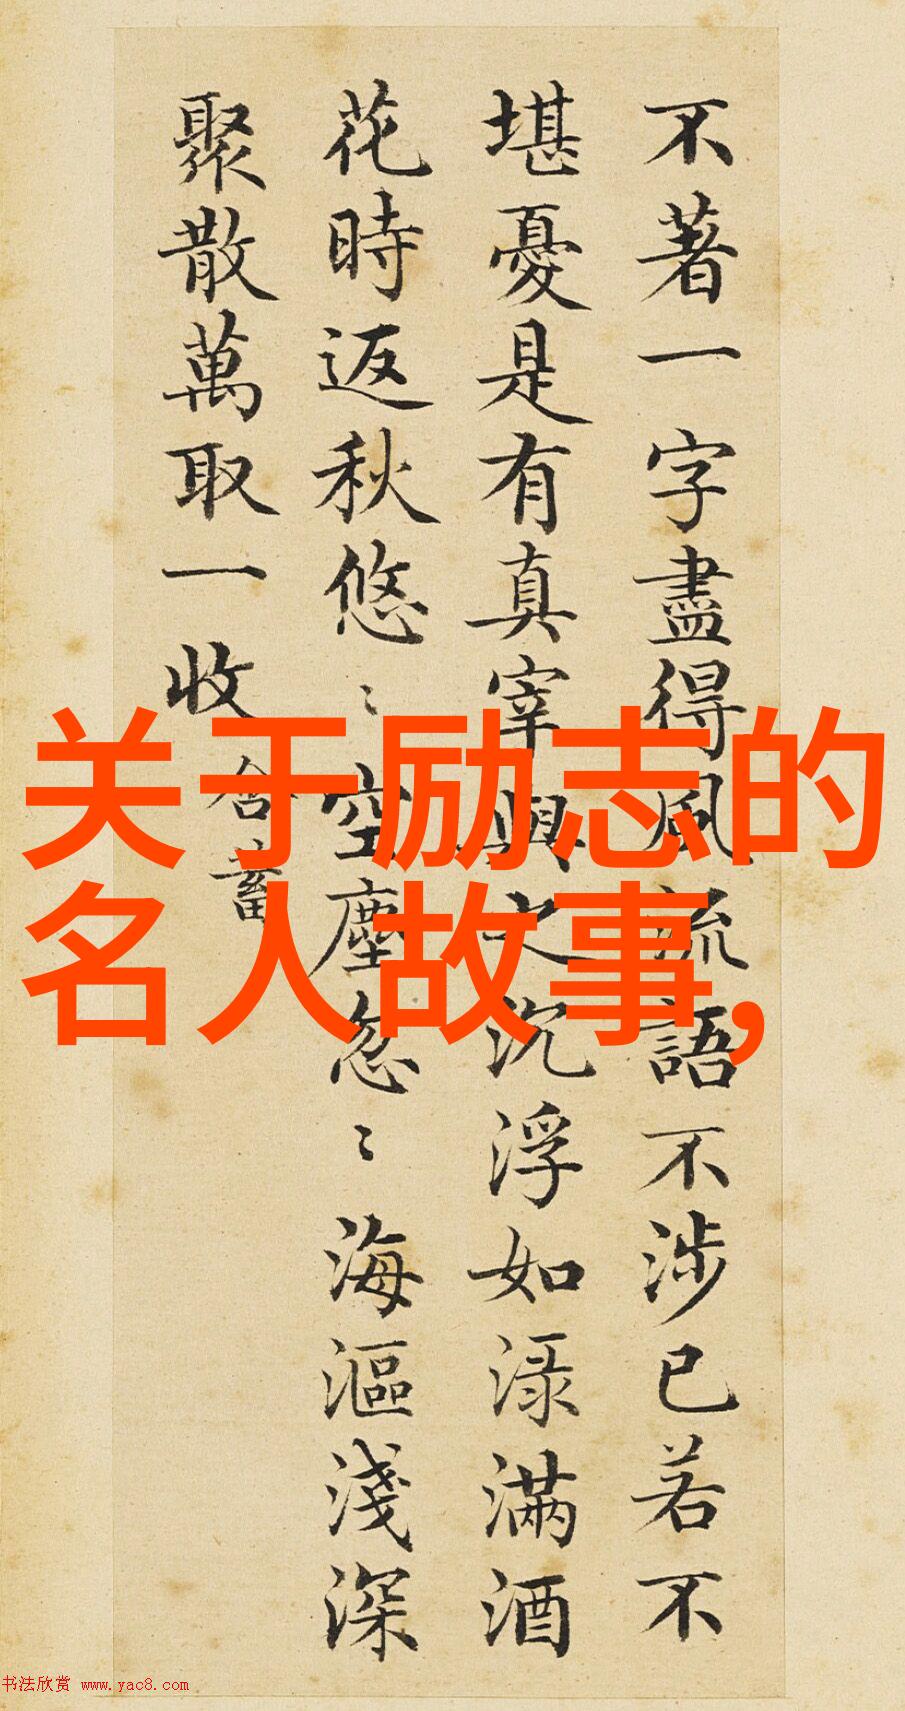 不著一字盡得風流語不涉已若不
堪憂是有真宰與之沉浮如渌滿酒
花時返秋悠〻空塵忽〻海漚淺深
聚散萬取一收
含蓄
关于励志的
名人故事,
书法欣赏 www.yac8.com